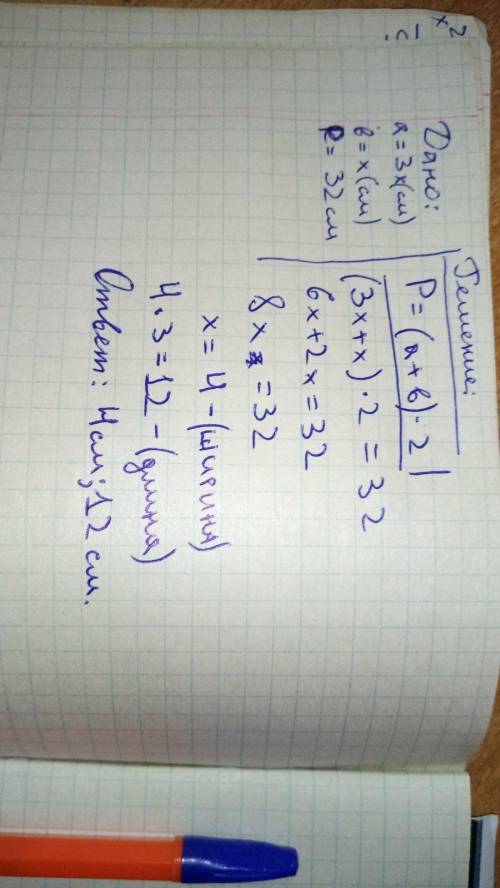 x²
=
c
Дано:
a = 3x(см)
в = x(см)
P = 32 см
Решение:
P = (a + в) · 2
(3x + x) · 2 = 32
6x + 2x = 32
8x = 32
x = 4 - (ширина)
4 · 3 = 12 - (длина)
Ответ: 4 см; 12 см.